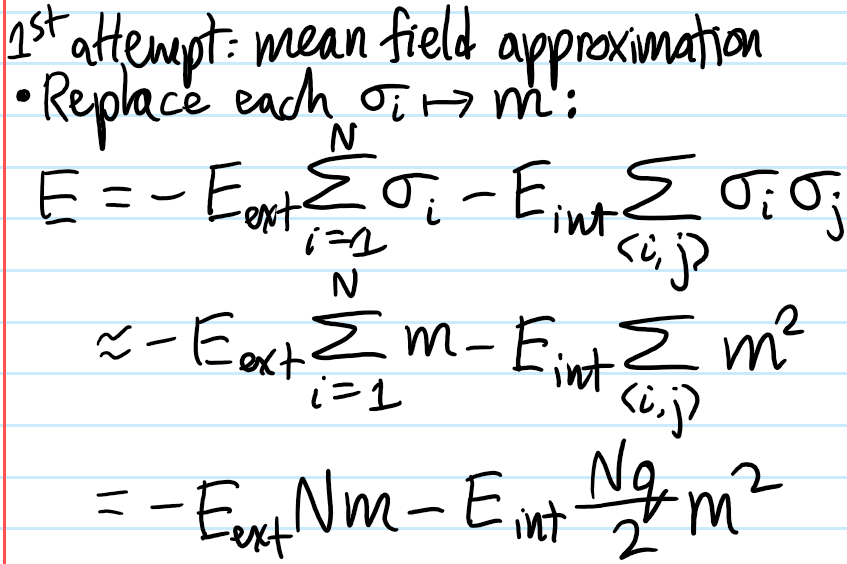 1st attempt: mean field approximation
• Replace each σᵢ ↦ m:
E = - E_ext ∑_{i=1}^{N} σ_i - E_int ∑_{<i,j>} σ_i σ_j
≈ - E_ext ∑_{i=1}^{N} m - E_int ∑_{<i,j>} m²
= - E_ext Nm - E_int \frac{Nq}{2} m²